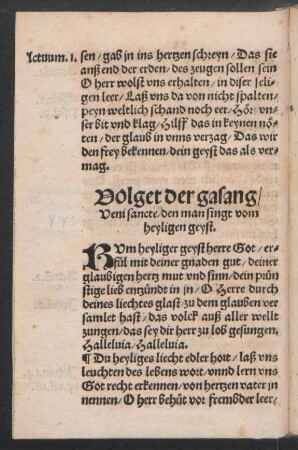 Actuum. 1. sen/ gab in ins hertzen schreyn/ Das sie
auß end der erden/ des zeugen sollen sein
O herr wolst vns erhalten/ in diser seli-
gen leer/ Laß vns da von nicht spalten/
peyn weltlich schand noch eer/ Hör vn-
ser bit vnd klag/ Hilff das in keynen nö-
ten/ der glaub in vnns verzag/ Das wir
den frey bekennen/ dein geyst das als ver-
mag.
Volget der gasang/
Veni sancte/ den man singt vom
heyligen geyst.
KVm heyliger geyst herre Got/ er-
fül mit deiner gnaden gut/ deiner
glaubigen hertz mut vnd sinn/ dein prün
stige lieb entzünd in jn/ O Herre durch
deines liechtes glast/ zu dem glauben ver
samlet hast/ das volck auß aller wellt
zungen/ das sey dir herr zu lob gesungen,
Halleluia/ Halleluia.
¶ Du heyliges liecht edler hott/ laß vns
leuchten des lebens wort/ vnnd lern vns
Got recht erkennen/ von hertzen vater jn
nennen/ O herr behüt vor frembder leer/